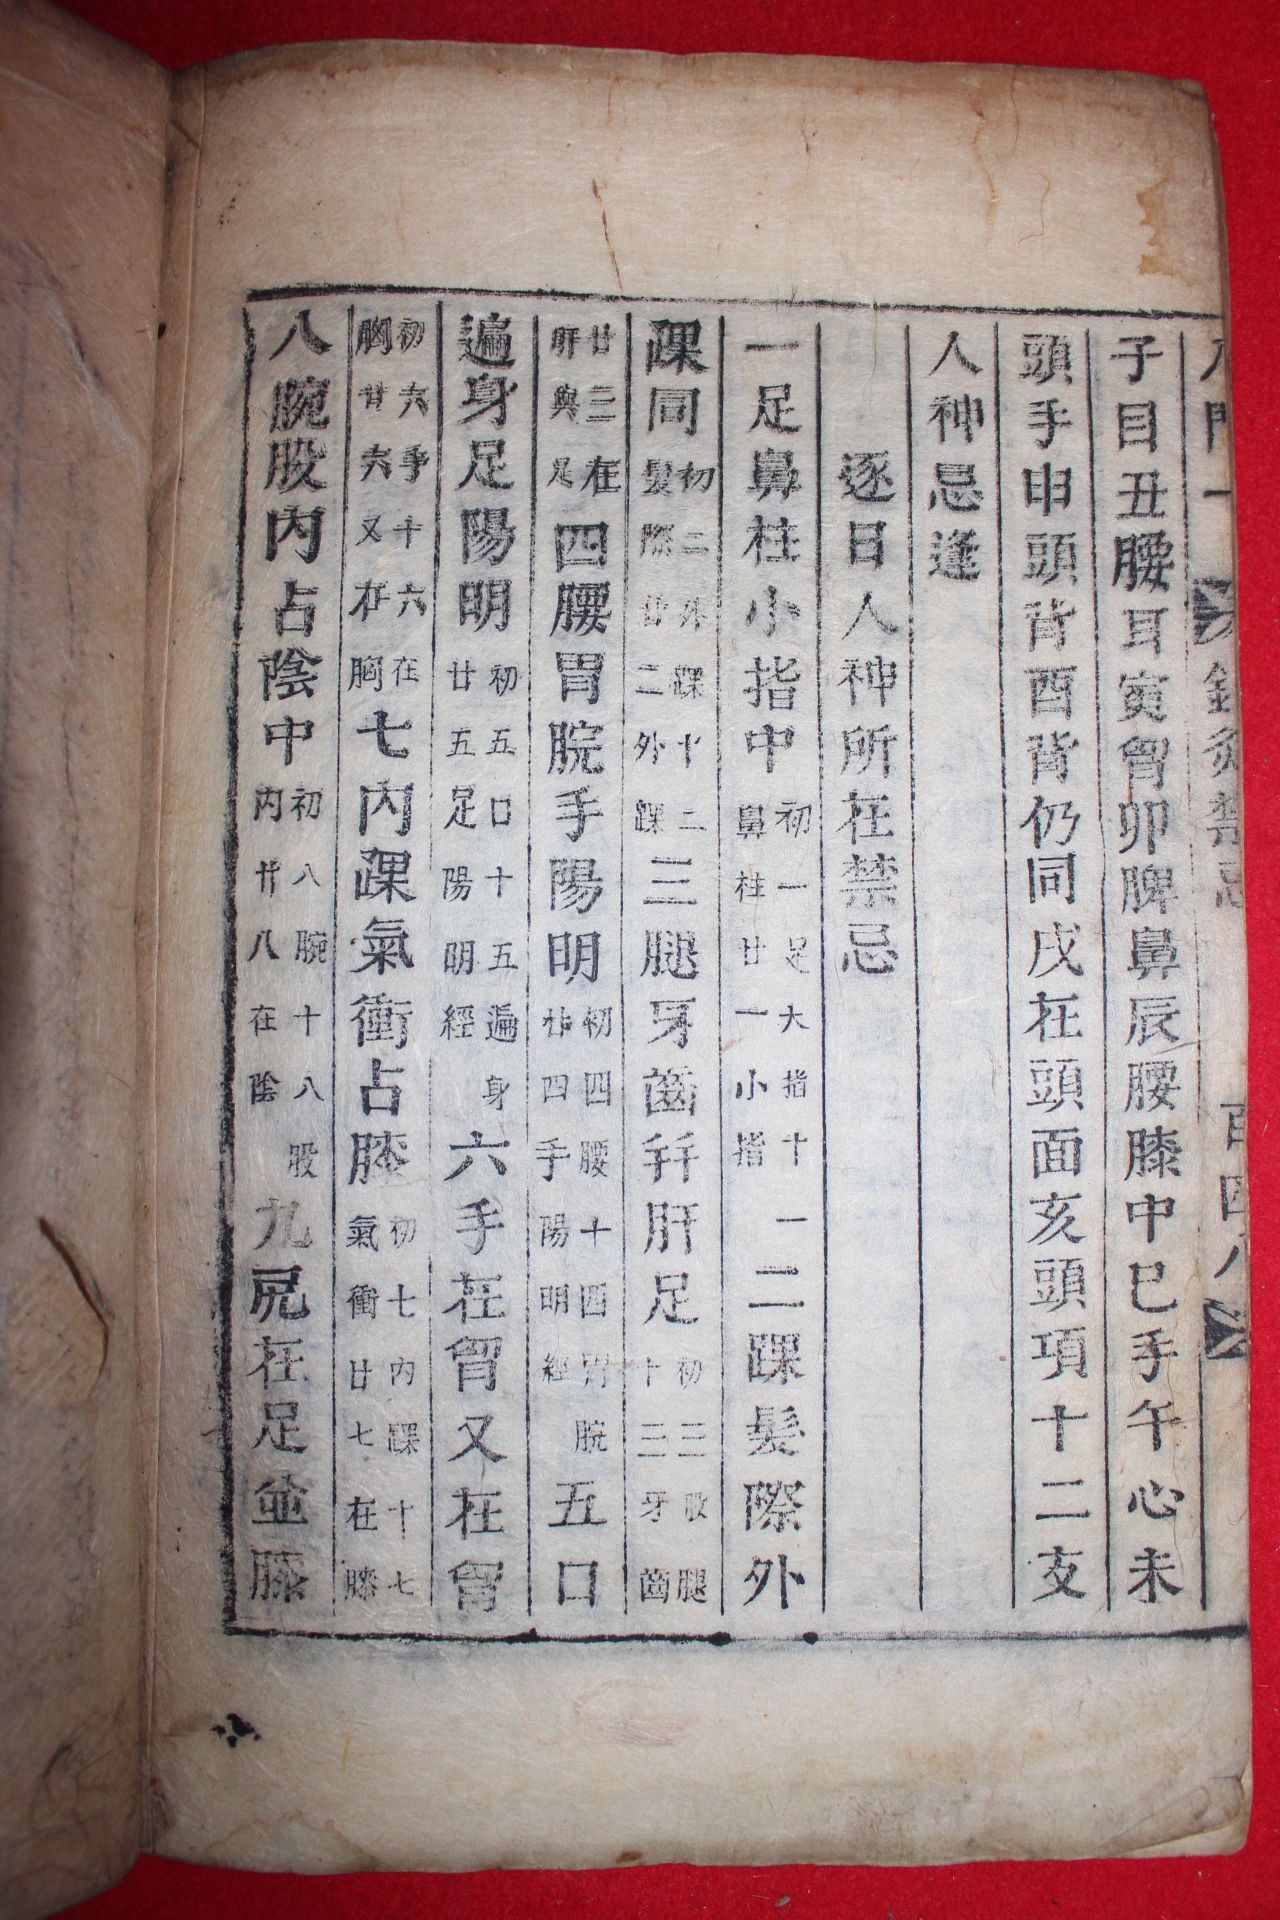 門一 灸禁忌 百四
子目丑腰耳寅胷卯脾鼻辰腰膝中巳手午心未
頭手申頭背酉背仍同戌在頭面亥頭項十二支
人神忌逢
逐日人神所在禁忌
一足鼻柱小指中初一足大指十一鼻柱廿一小指二踝髮際外
踝同初二外踝十二髮際廿二外踝三腿牙齒幷肝足初三股腿十三牙齒
廿三在肝與足四腰胃脘手陽明初四腰十四胃脘廿四手陽明經五口
遍身足陽明初五口十五遍身廿五足陽明經六手在胷又在胷
初六手十六在胸廿六又在胸七內踝氣衝占膝初七內踝十七氣衝廿七在膝
八腕股內占陰中初八腕十八股內廿八在陰九尻在足並膝